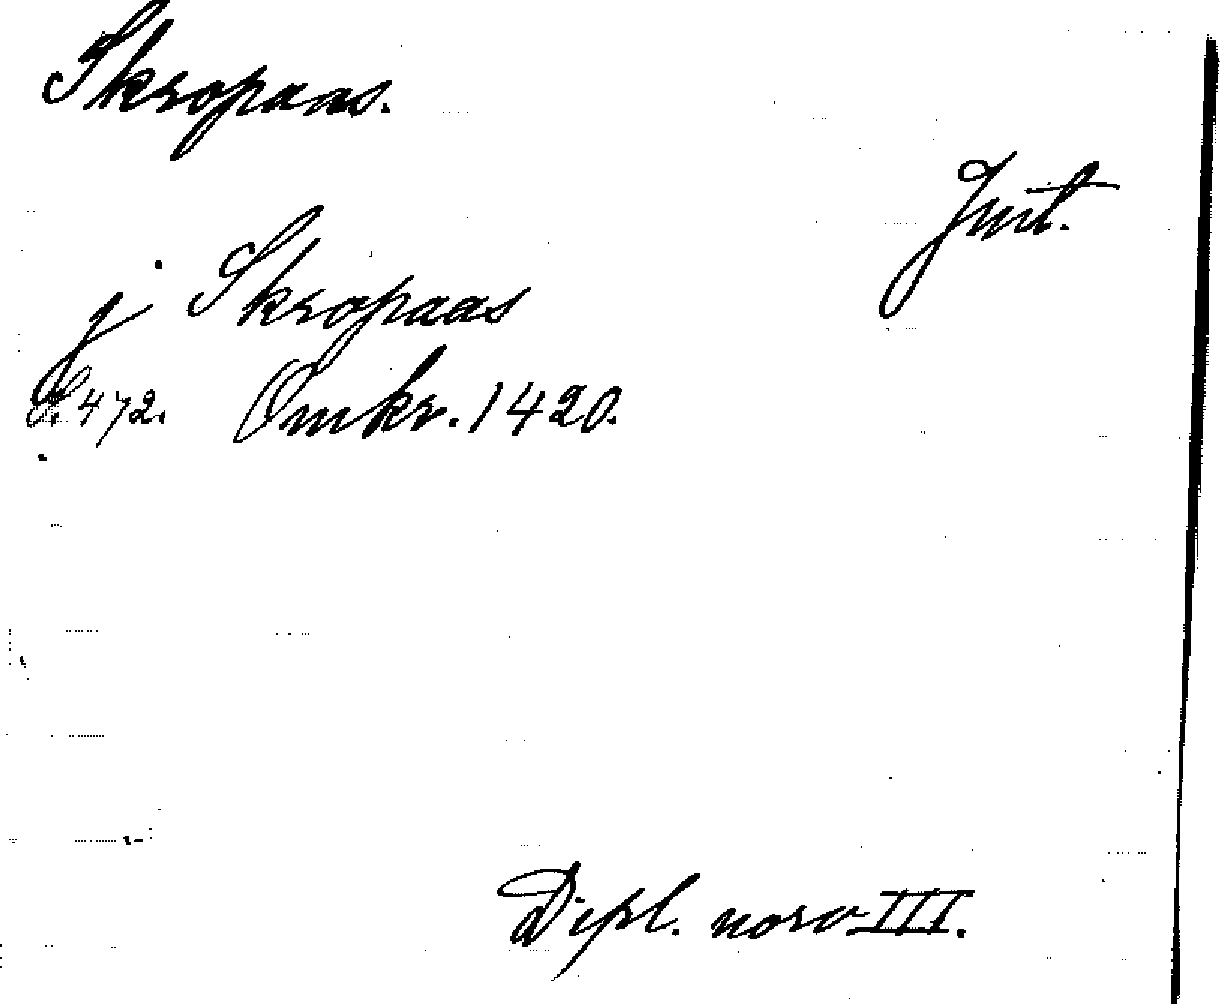 Skropaas.
Jmt.
j Skropaas
S. 472. Omkr. 1420.
Dipl. norv III.